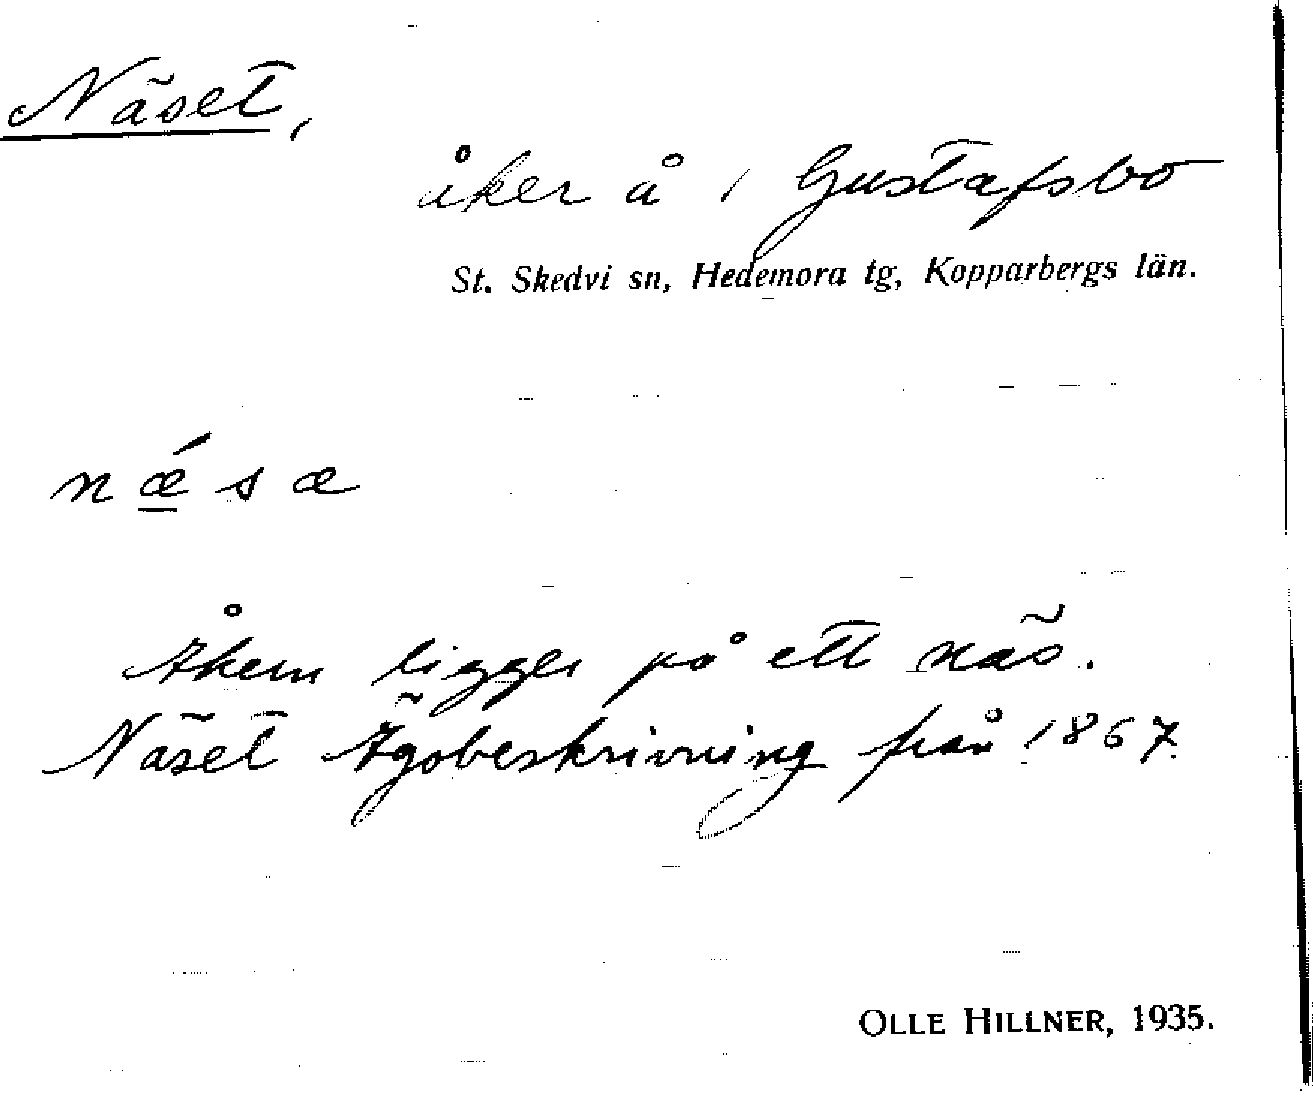 Näset,
åker å 1 Gustafsbo
St. Skedvi sn, Hedemora tg, Kopparbergs län.
nǽsæ
Åkern ligger på ett näs.
Näset Ägobeskrivning från 1867.
OLLE HILLNER, 1935.